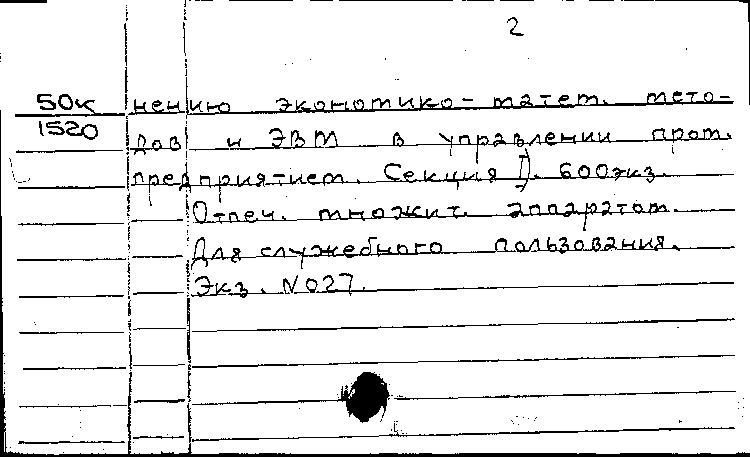 2
50к нению экономико-матем. мето-
1520 дов и ЭВМ в управлении пром.
предприятием. Секция I). 600экз.
Отпеч. множит. аппаратом.
Для служебного пользования.
Экз. N027.